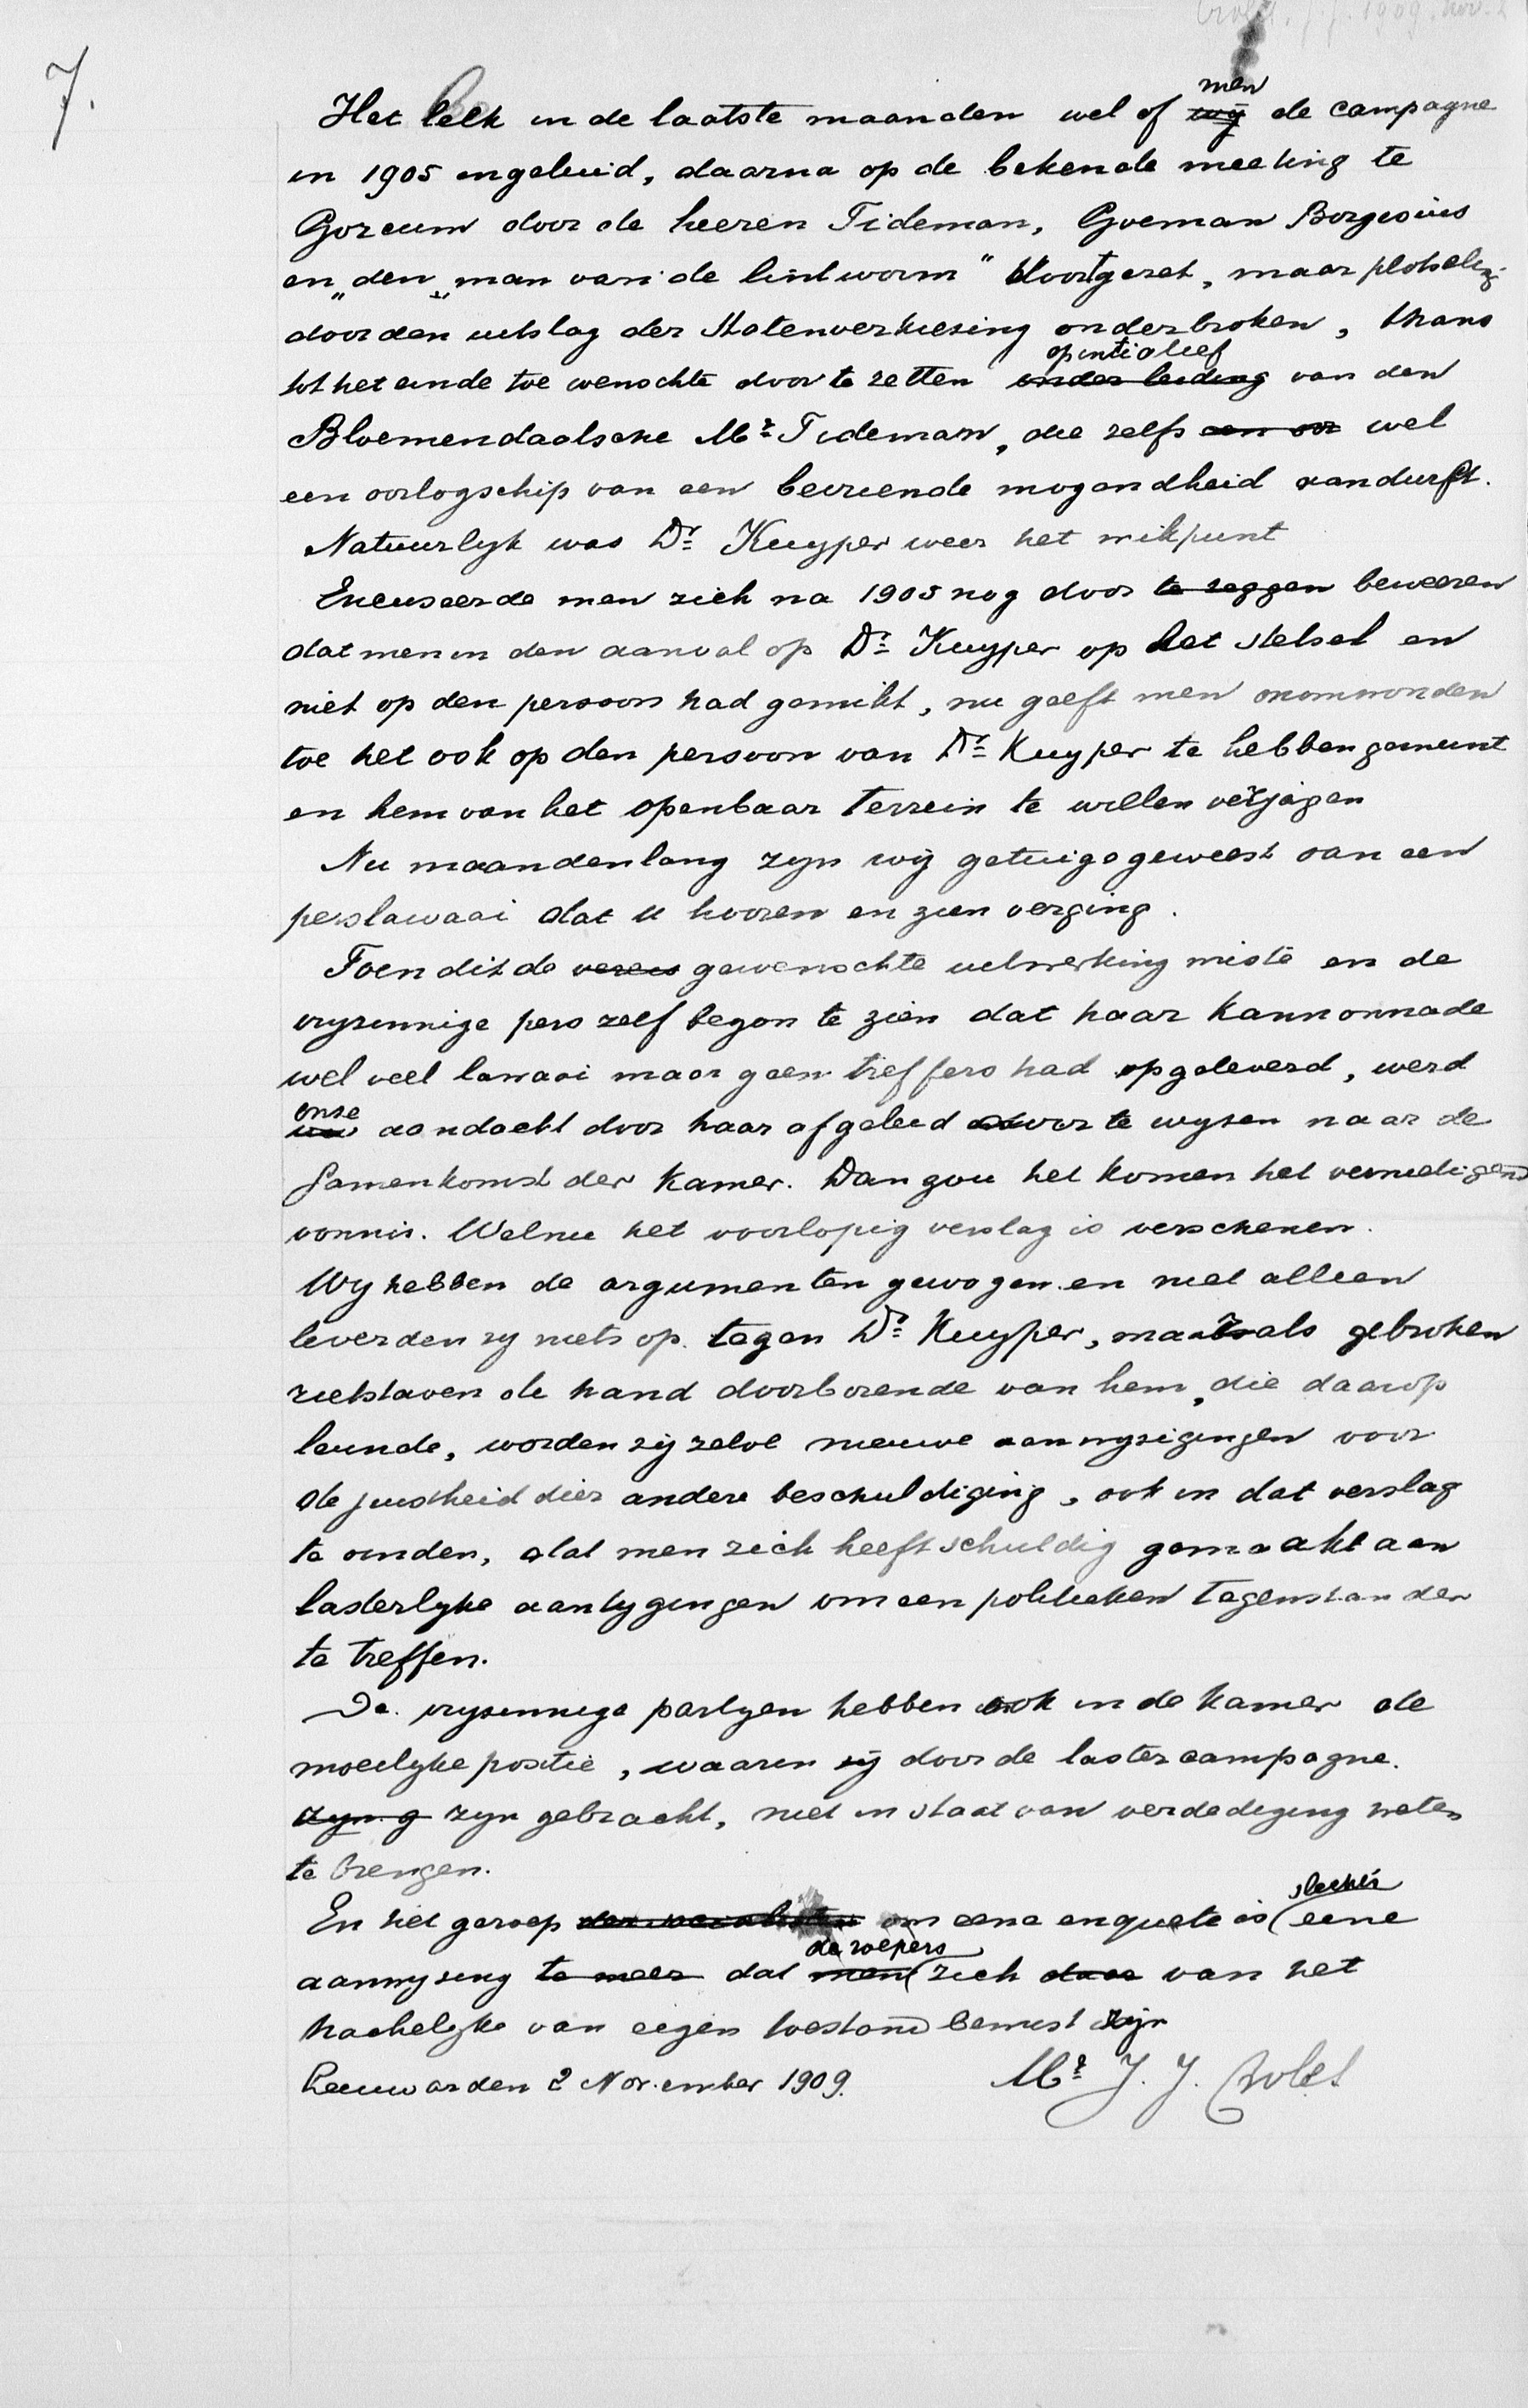 7.
Het leek in de laatste maanden wel of men de campagne
in 1905 ingeluid, daarna op de bekende meeting te
Gorcum door de heeren Tideman, Goeman Borgesius
en „den „man van de lintworm" voortgezet, maar plotseling
door den uitslag der Statenverkiezing onderbroken, thans
tot het einde toe wenschte door te zetten op initiatief van den
Bloemendaalsche Mr. Tideman, die zelfs wel
een oorlogschip van een bevriende mogendheid aandurft.
Natuurlyk was Dr. Kuyper weer het mikpunt
Excuseerde men zich na 1905 nog door te zeggen beweeren
dat men in den aanval op Dr. Kuyper op het stelsel en
niet op den persoon had gemikt, nu geeft men onomwonden
toe het ook op den persoon van Dr. Kuyper te hebben gemunt
en hem van het openbaar terrein te willen verjagen
Nu maandenlang zyn wij getuige geweest van een
perslawaai dat u hooren en zien verging.
Toen dit de gewenschte uitwerking miste en de
vryzinnige pers zelf begon te zien dat haar kannonnade
wel veel lawaai maar geen treffers had opgeleverd, werd
onze aandacht door haar afgeleid door te wyzen naar de
Samenkomst der Kamer. Dan zou het komen het vernietigend
vonnis. Welnu het voorlopig verslag is verschenen.
Wy hebben de argumenten gewogen en niet alleen
leverden zy niets op tegen Dr. Kuyper, maar als gebroken
rietstaven de hand doorborende van hem, die daarop
leunde, worden zij zelve nieuwe aanwyzigingen voor
de juistheid dier andere beschuldiging, ook in dat verslag
te vinden, dat men zich heeft schuldig gemaakt aan
lasterlyke aantygingen om een politieken tegenstander
te treffen.
De vryzinnige partyen hebben ook in de Kamer de
moeilyke positie, waarin zij door de lastercampagne.
zyn g zyn gebracht, niet in staat van verdediging weten
te brengen.
En het geroep om eene enquete is slechts eene
aanwyzing te meer dat de roepers zich van het
hachelyke van eigen toestand bewust zijn
Leeuwarden 2 November 1909. Mr. J. J. Croles